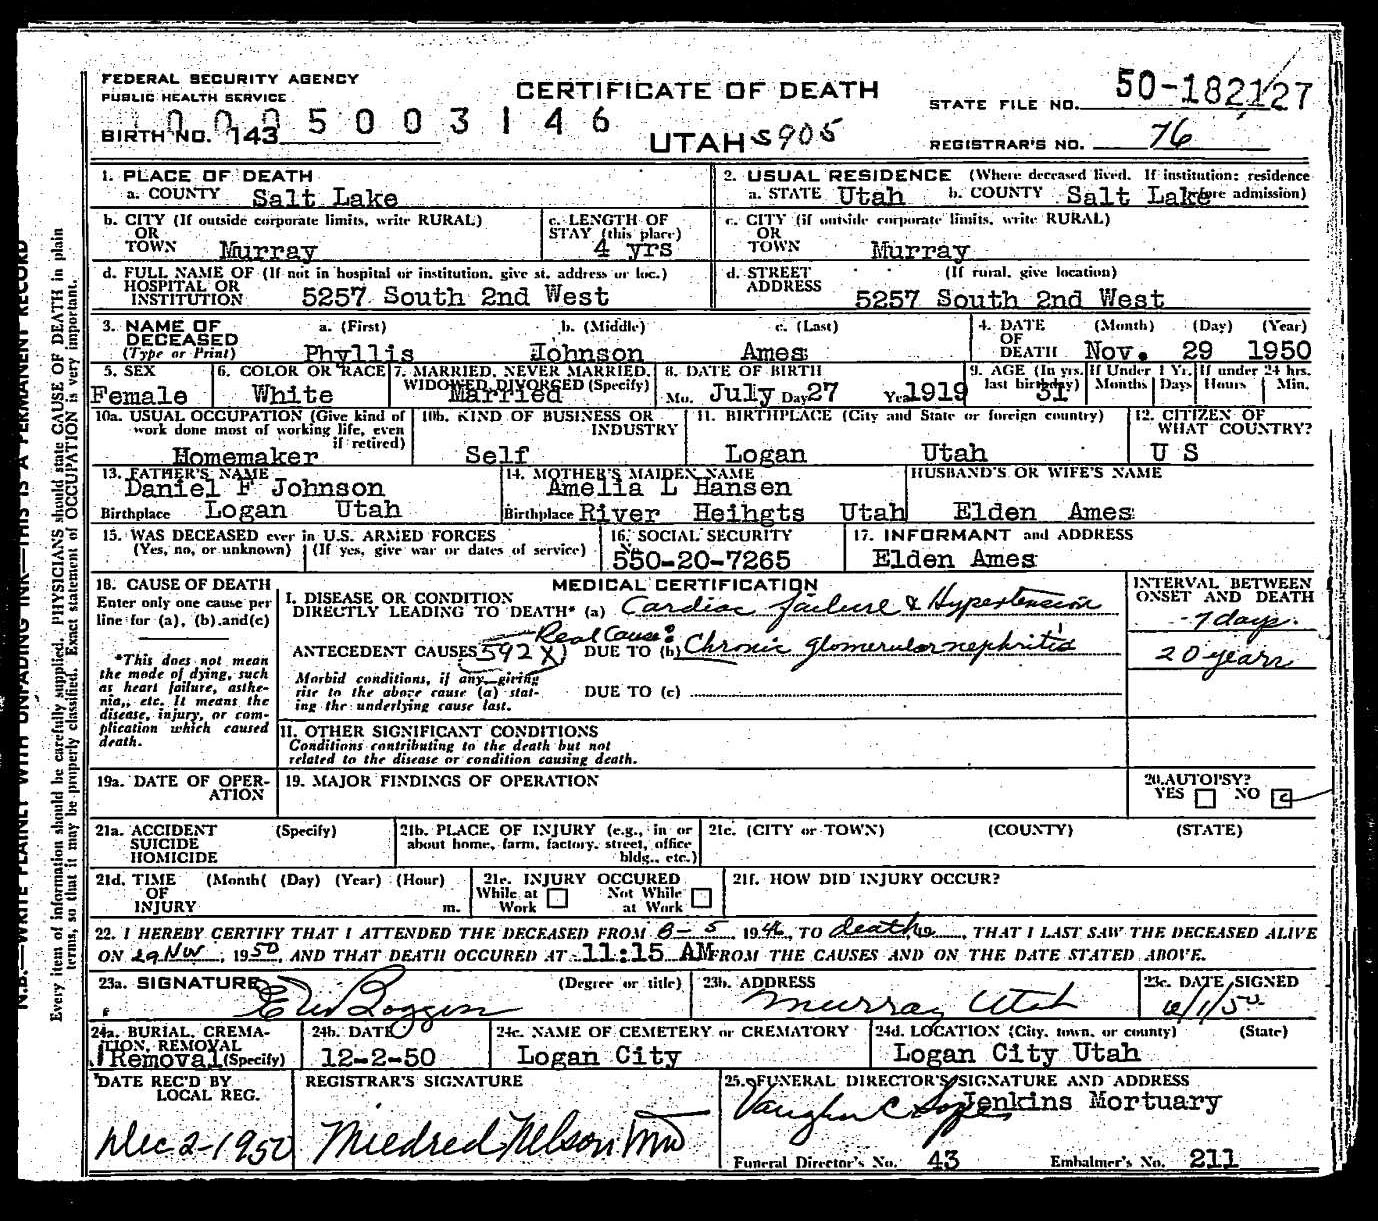 FEDERAL SECURITY AGENCY
PUBLIC HEALTH SERVICE
5003146
BIRTH NO. 143
CERTIFICATE OF DEATH
UTAH S905
STATE FILE NO. 50-182127
REGISTRAR'S NO. 76
1. PLACE OF DEATH
a. COUNTY Salt Lake
2. USUAL RESIDENCE (Where deceased lived. If institution: residence before admission)
a. STATE Utah b. COUNTY Salt Lake
b. CITY (If outside corporate limits, write RURAL)
OR
TOWN Murray
c. LENGTH OF
STAY (this place)
4 yrs
c. CITY (if outside corporate limits, write RURAL)
OR
TOWN Murray
d. FULL NAME OF (If not in hospital or institution, give st. address or loc.)
HOSPITAL OR
INSTITUTION 5257 South 2nd West
d. STREET (If rural, give location)
ADDRESS 5257 South 2nd West
3. NAME OF a. (First) b. (Middle) c. (Last)
DECEASED
(Type or Print) Phyllis Johnson Ames
4. DATE (Month) (Day) (Year)
OF
DEATH Nov. 29 1950
5. SEX
Female
6. COLOR OR RACE
White
7. MARRIED, NEVER MARRIED,
WIDOWED, DIVORCED (Specify)
Married
8. DATE OF BIRTH
Mo. July Day 27 Yea 1919
9. AGE (In yrs.
last birthday)
31
If Under 1 Yr.
Months Days
If under 24 hrs.
Hours Min.
10a. USUAL OCCUPATION (Give kind of
work done most of working life, even
if retired)
Homemaker
10b. KIND OF BUSINESS OR
INDUSTRY
Self
11. BIRTHPLACE (City and State or foreign country)
Logan Utah
12. CITIZEN OF
WHAT COUNTRY?
U S
13. FATHER'S NAME
Daniel F Johnson
Birthplace Logan Utah
14. MOTHER'S MAIDEN NAME
Amelia L Hansen
Birthplace River Heihgts Utah
HUSBAND'S OR WIFE'S NAME
Elden Ames
15. WAS DECEASED ever in U.S. ARMED FORCES
(Yes, no, or unknown) (If yes, give war or dates of service)
16. SOCIAL SECURITY
No.
550-20-7265
17. INFORMANT and ADDRESS
Elden Ames
18. CAUSE OF DEATH
Enter only one cause per
line for (a), (b), and (c)
*This does not mean
the mode of dying, such
as heart failure, asthe-
nia,, etc. It means the
disease, injury, or com-
plication which caused
death.
MEDICAL CERTIFICATION
I. DISEASE OR CONDITION
DIRECTLY LEADING TO DEATH* (a) Cardiac failure & Hypertension
Real Cause:
ANTECEDENT CAUSES 592X DUE TO (b) Chronic glomerular nephritis
Morbid conditions, if any, giving
rise to the above cause (a) stat-
ing the underlying cause last.
DUE TO (c)
INTERVAL BETWEEN
ONSET AND DEATH
7 days.
20 years
II. OTHER SIGNIFICANT CONDITIONS
Conditions contributing to the death but not
related to the disease or condition causing death.
19a. DATE OF OPER-
ATION
19. MAJOR FINDINGS OF OPERATION
20. AUTOPSY?
YES NO
21a. ACCIDENT (Specify)
SUICIDE
HOMICIDE
21b. PLACE OF INJURY (e.g., in or
about home, farm, factory, street, office
bldg., etc.)
21c. (CITY or TOWN) (COUNTY) (STATE)
21d. TIME (Month( (Day) (Year) (Hour)
OF
INJURY m.
21e. INJURY OCCURED
While at Work Not While at Work
21f. HOW DID INJURY OCCUR?
22. I HEREBY CERTIFY THAT I ATTENDED THE DECEASED FROM 8-5 1946, TO death, 19, THAT I LAST SAW THE DECEASED ALIVE
ON 29 Nov, 1950, AND THAT DEATH OCCURED AT 11:15 AM FROM THE CAUSES AND ON THE DATE STATED ABOVE.
23a. SIGNATURE (Degree or title)
23b. ADDRESS
Murray Utah
23c. DATE SIGNED
24a. BURIAL, CREMA-
TION, REMOVAL
Removal (Specify)
24b. DATE
12-2-50
24c. NAME OF CEMETERY or CREMATORY
Logan City
24d. LOCATION (City, town, or county) (State)
Logan City Utah
DATE REC'D BY
LOCAL REG.
Dec 2-1950
REGISTRAR'S SIGNATURE
Mildred Nelson MD
25. FUNERAL DIRECTOR'S SIGNATURE AND ADDRESS
Vaughn C Jenkins Mortuary
Funeral Director's No. 43 Embalmer's No. 211
N.B.—WRITE PLAINLY WITH UNFADING INK—THIS IS A PERMANENT RECORD
Every item of information should be carefully supplied. PHYSICIANS should state CAUSE OF DEATH in plain
terms, so that it may be properly classified. Exact statement of OCCUPATION is very important.